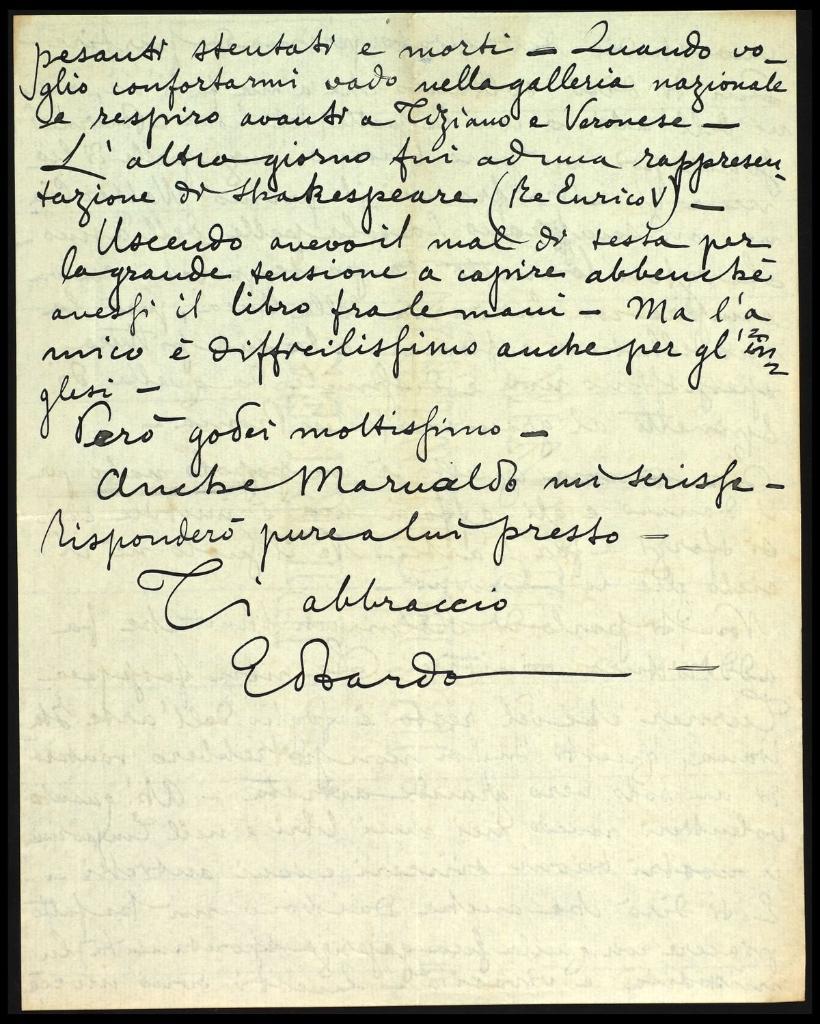 pesanti stentati e morti – Quando vo-
glio confortarmi vado nella galleria nazionale
e respiro avanti a Tiziano e Veronese –
L'altro giorno fui ad una rappresen-
tazione di Shakespeare (Re Enrico V) –
Uscendo avevo il mal di testa per
la grande tensione a capire abbenchè
avessi il libro fra le mani – Ma l'a
mico è difficilissimo anche per gl'in
glesi –
Però godei moltissimo –
Anche Marualdo mi scrisse –
Risponderò pure a lui presto –
Ti abbraccio
Edoardo –